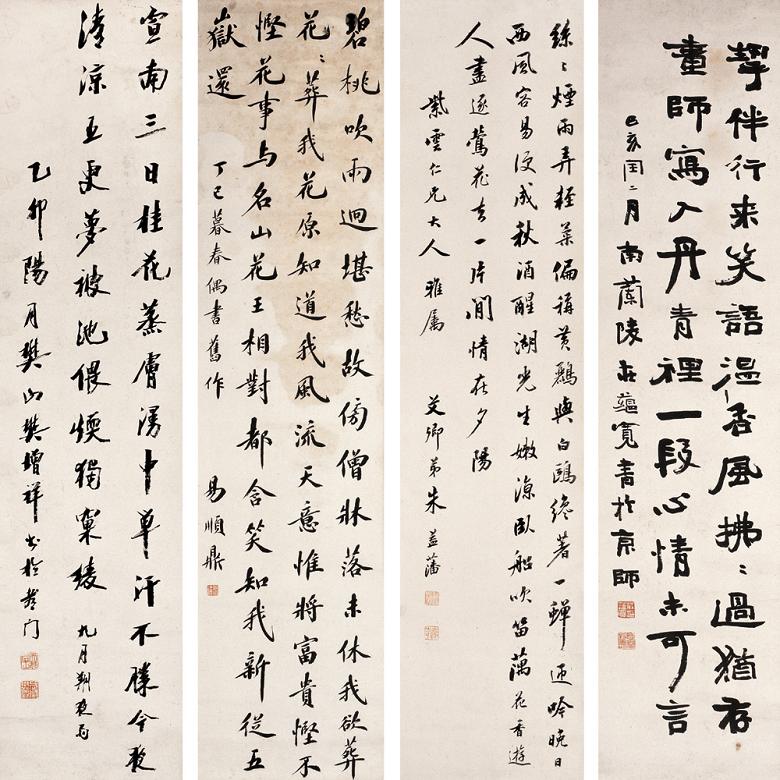 挈伴行来笑語温香風拂〻過猶存
畫師寫入丹青裡一段心情未可言
己亥閏二月南蘭陵莊蘊寬書於京師
絲〻煙雨弄輕柔偏稱黃鸝與白鷗纔著一蟬吟晚日
西風容易便成秋酒醒湖光生嫩涼臥船吹笛藕花香遊
人盡逐鶯花去一片閒情在夕陽
紫雲仁兄大人雅屬 艾卿弟朱益藩
碧桃吹雨迴堪愁故傍僧牀落未休我欲葬
花〻葬我花原知道我風流天意惟將富貴慳不
慳花事与名山花王相對都含笑知我新從五
嶽還
丁巳暮春偶書舊作 易順鼎
宣南三日桂花蒸膚湧中單汗不勝今夜
清涼五更夢被池偎煖獨綾 九月朔夜
乙卯陽月樊山樊增祥書於門